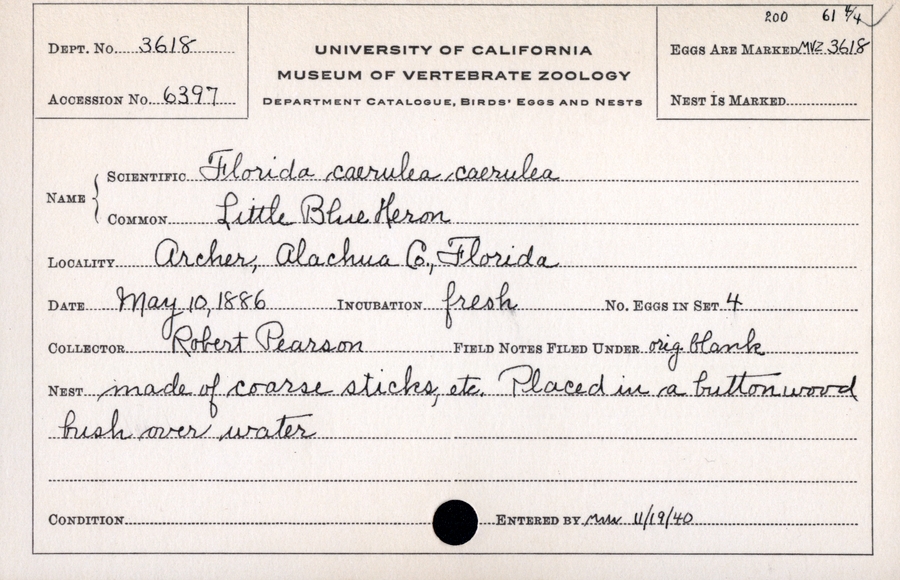 200 61 4/4
DEPT. NO. 3618
UNIVERSITY OF CALIFORNIA
EGGS ARE MARKED MVZ 3618
MUSEUM OF VERTEBRATE ZOOLOGY
ACCESSION NO. 6397
DEPARTMENT CATALOGUE, BIRDS' EGGS AND NESTS
NEST IS MARKED
NAME
SCIENTIFIC Florida caerulea caerulea
COMMON Little Blue Heron
LOCALITY Archer, Alachua Co., Florida
DATE May 10, 1886 INCUBATION fresh NO. EGGS IN SET 4
COLLECTOR Robert Pearson FIELD NOTES FILED UNDER orig. blank
NEST made of coarse sticks, etc. Placed in a buttonwood
bush over water
CONDITION ENTERED BY 11/19/40